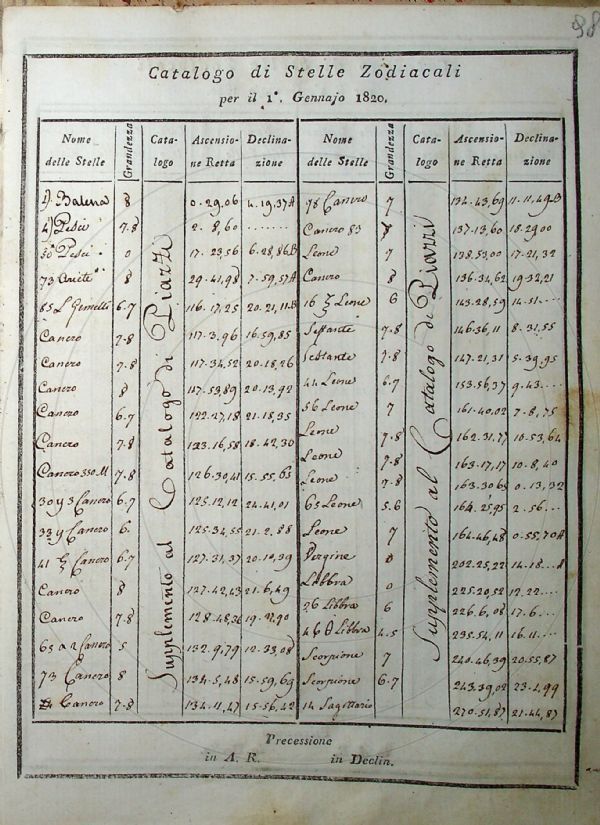 98
Catalogo di Stelle Zodiacali
per il 1°. Gennajo 1820.
Nome delle Stelle Grandezza Catalogo Ascensione Retta Declinazione Nome delle Stelle Grandezza Catalogo Ascensione Retta Declinazione
Supplemento al Catalogo di Piazzi
Supplemento al Catalogo di Piazzi
Balena 8 0.29.06 4.19,37A
Pesci 7.8 2.8,60
Pesci 0 17.23,56 6.28,86B
73 Ariete 8 29.41,98 7.59,57A
85 L Gemelli 6.7 116.17,25 20.21,11B
Cancro 7.8 117.3,96 16.59,85
Cancro 7.8 117.34,52 20.18,26
Cancro 8 117.53,89 20.13,92
Cancro 6.7 122.27,18 21.18,35
Cancro 7.8 123.16,58 18.42,30
Cancro 330.M 7.8 126.30,41 15.55,65
30 y 3 Cancro 6.7 125.12,12 24.41,01
33 y Cancro 6. 125.34,55 21.2,88
41 Cancro 6.7 127.31,37 20.10,39
Cancro 8 127.42,43 21.6,49
Cancro 7.8 128.48,36
65 a 2 Cancro 5 132.9,79 12.33,08
73 Cancro 8 134.5,48 15.59,69
Cancro 7.8 134.11,47 15.56,42
78 Cancro 7 134.43,69 11.11,49B
Cancro 83 137.13,60 18.29,00
Leone 7 138.53,00 17.21,32
Cancro 8 136.34,62 19.32,21
16 Leone 6 143.28,59 14.51....
Sestante 7.8 146.36,11 8.31,55
Sestante 7.8 147.21,31 5.39,95
44 Leone 6.7 153.56,37 9.43....
56 Leone 7 161.40,02 7.8,75
Leone 7.8 162.31,77 10.53,64
Leone 7.8 163.17,17 10.8,40
Leone 7.8 163.30,65 0.13,32
65 Leone 5.6 164.25,95 2.56...
Leone 7 164.46,48 0.55,70A
Vergine 202.25,22 14.18...8
Libbra 0 225.20,52 12.22....
26 Libbra 6 226.6,08 17.6....
46 θ Libbra 4.5 235.54,11 16.11....
Scorpione 7 240.46,39 20.55,87
Scorpione 6.7 243.39,02 23.4,99
14 Sagittario 270.51,87 21.44,87
Precessione
in A. R. in Declin.